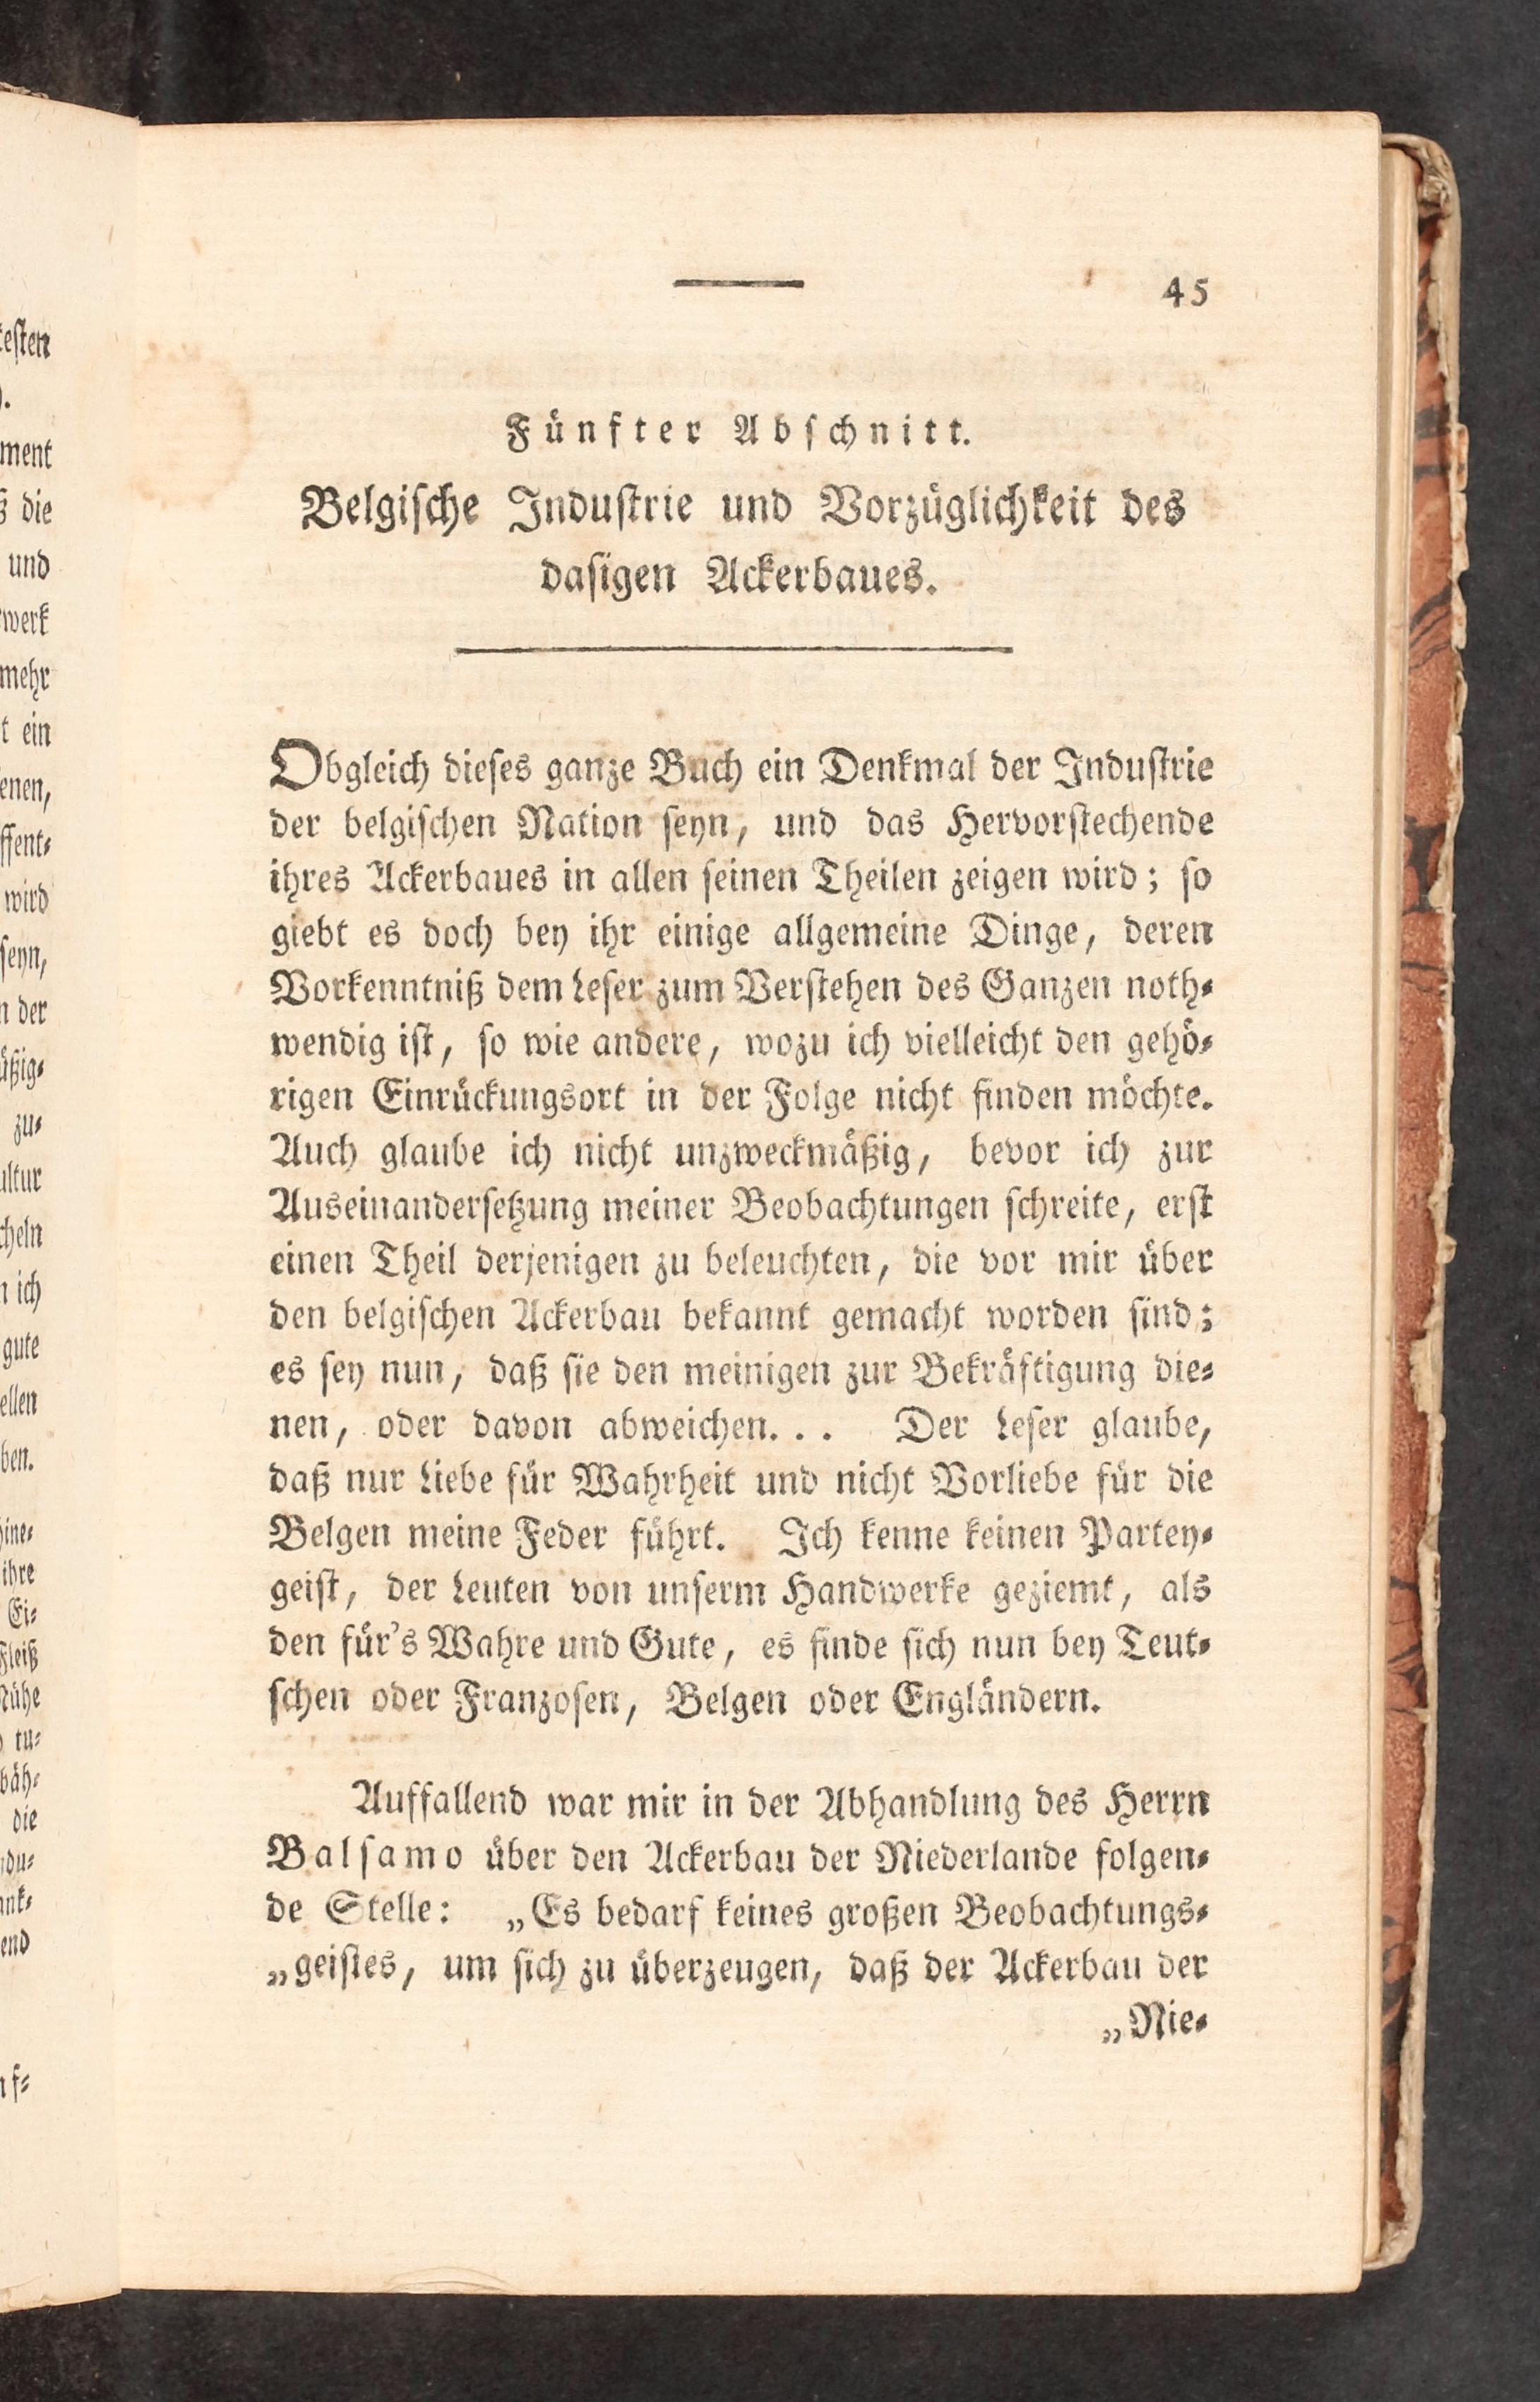 45
Fünfter Abschnitt.
Belgische Industrie und Vorzüglichkeit des
dasigen Ackerbaues.
Obgleich dieses ganze Buch ein Denkmal der Industrie
der belgischen Nation seyn, und das Hervorstechende
ihres Ackerbaues in allen seinen Theilen zeigen wird; so
giebt es doch bey ihr einige allgemeine Dinge, deren
Vorkenntniß dem Leser zum Verstehen des Ganzen noth-
wendig ist, so wie andere, wozu ich vielleicht den gehö-
rigen Einrückungsort in der Folge nicht finden möchte.
Auch glaube ich nicht unzweckmäßig, bevor ich zur
Auseinandersetzung meiner Beobachtungen schreite, erst
einen Theil derjenigen zu beleuchten, die vor mir über
den belgischen Ackerbau bekannt gemacht worden sind;
es sey nun, daß sie den meinigen zur Bekräftigung die-
nen, oder davon abweichen... Der Leser glaube,
daß nur Liebe für Wahrheit und nicht Vorliebe für die
Belgen meine Feder führt. Ich kenne keinen Partey-
geist, der Leuten von unserm Handwerke geziemt, als
den für's Wahre und Gute, es finde sich nun bey Teut-
schen oder Franzosen, Belgen oder Engländern.
Auffallend war mir in der Abhandlung des Herrn
Balsamo über den Ackerbau der Niederlande folgen-
de Stelle: „Es bedarf keines großen Beobachtungs-
„geistes, um sich zu überzeugen, daß der Ackerbau der
„Nie-